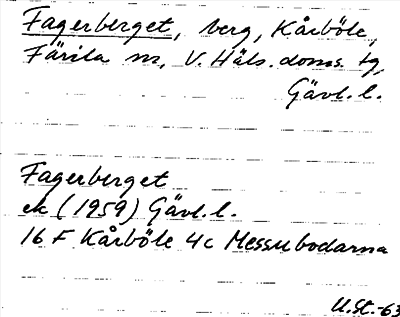 Fagerberget, berg, Kårböle,
Färila sn, V. Häls. doms. tg,
Gävl. l.
Fagerberget
ek (1959) Gävl. l.
16 F Kårböle 4c Messubodarna
U.St.-63